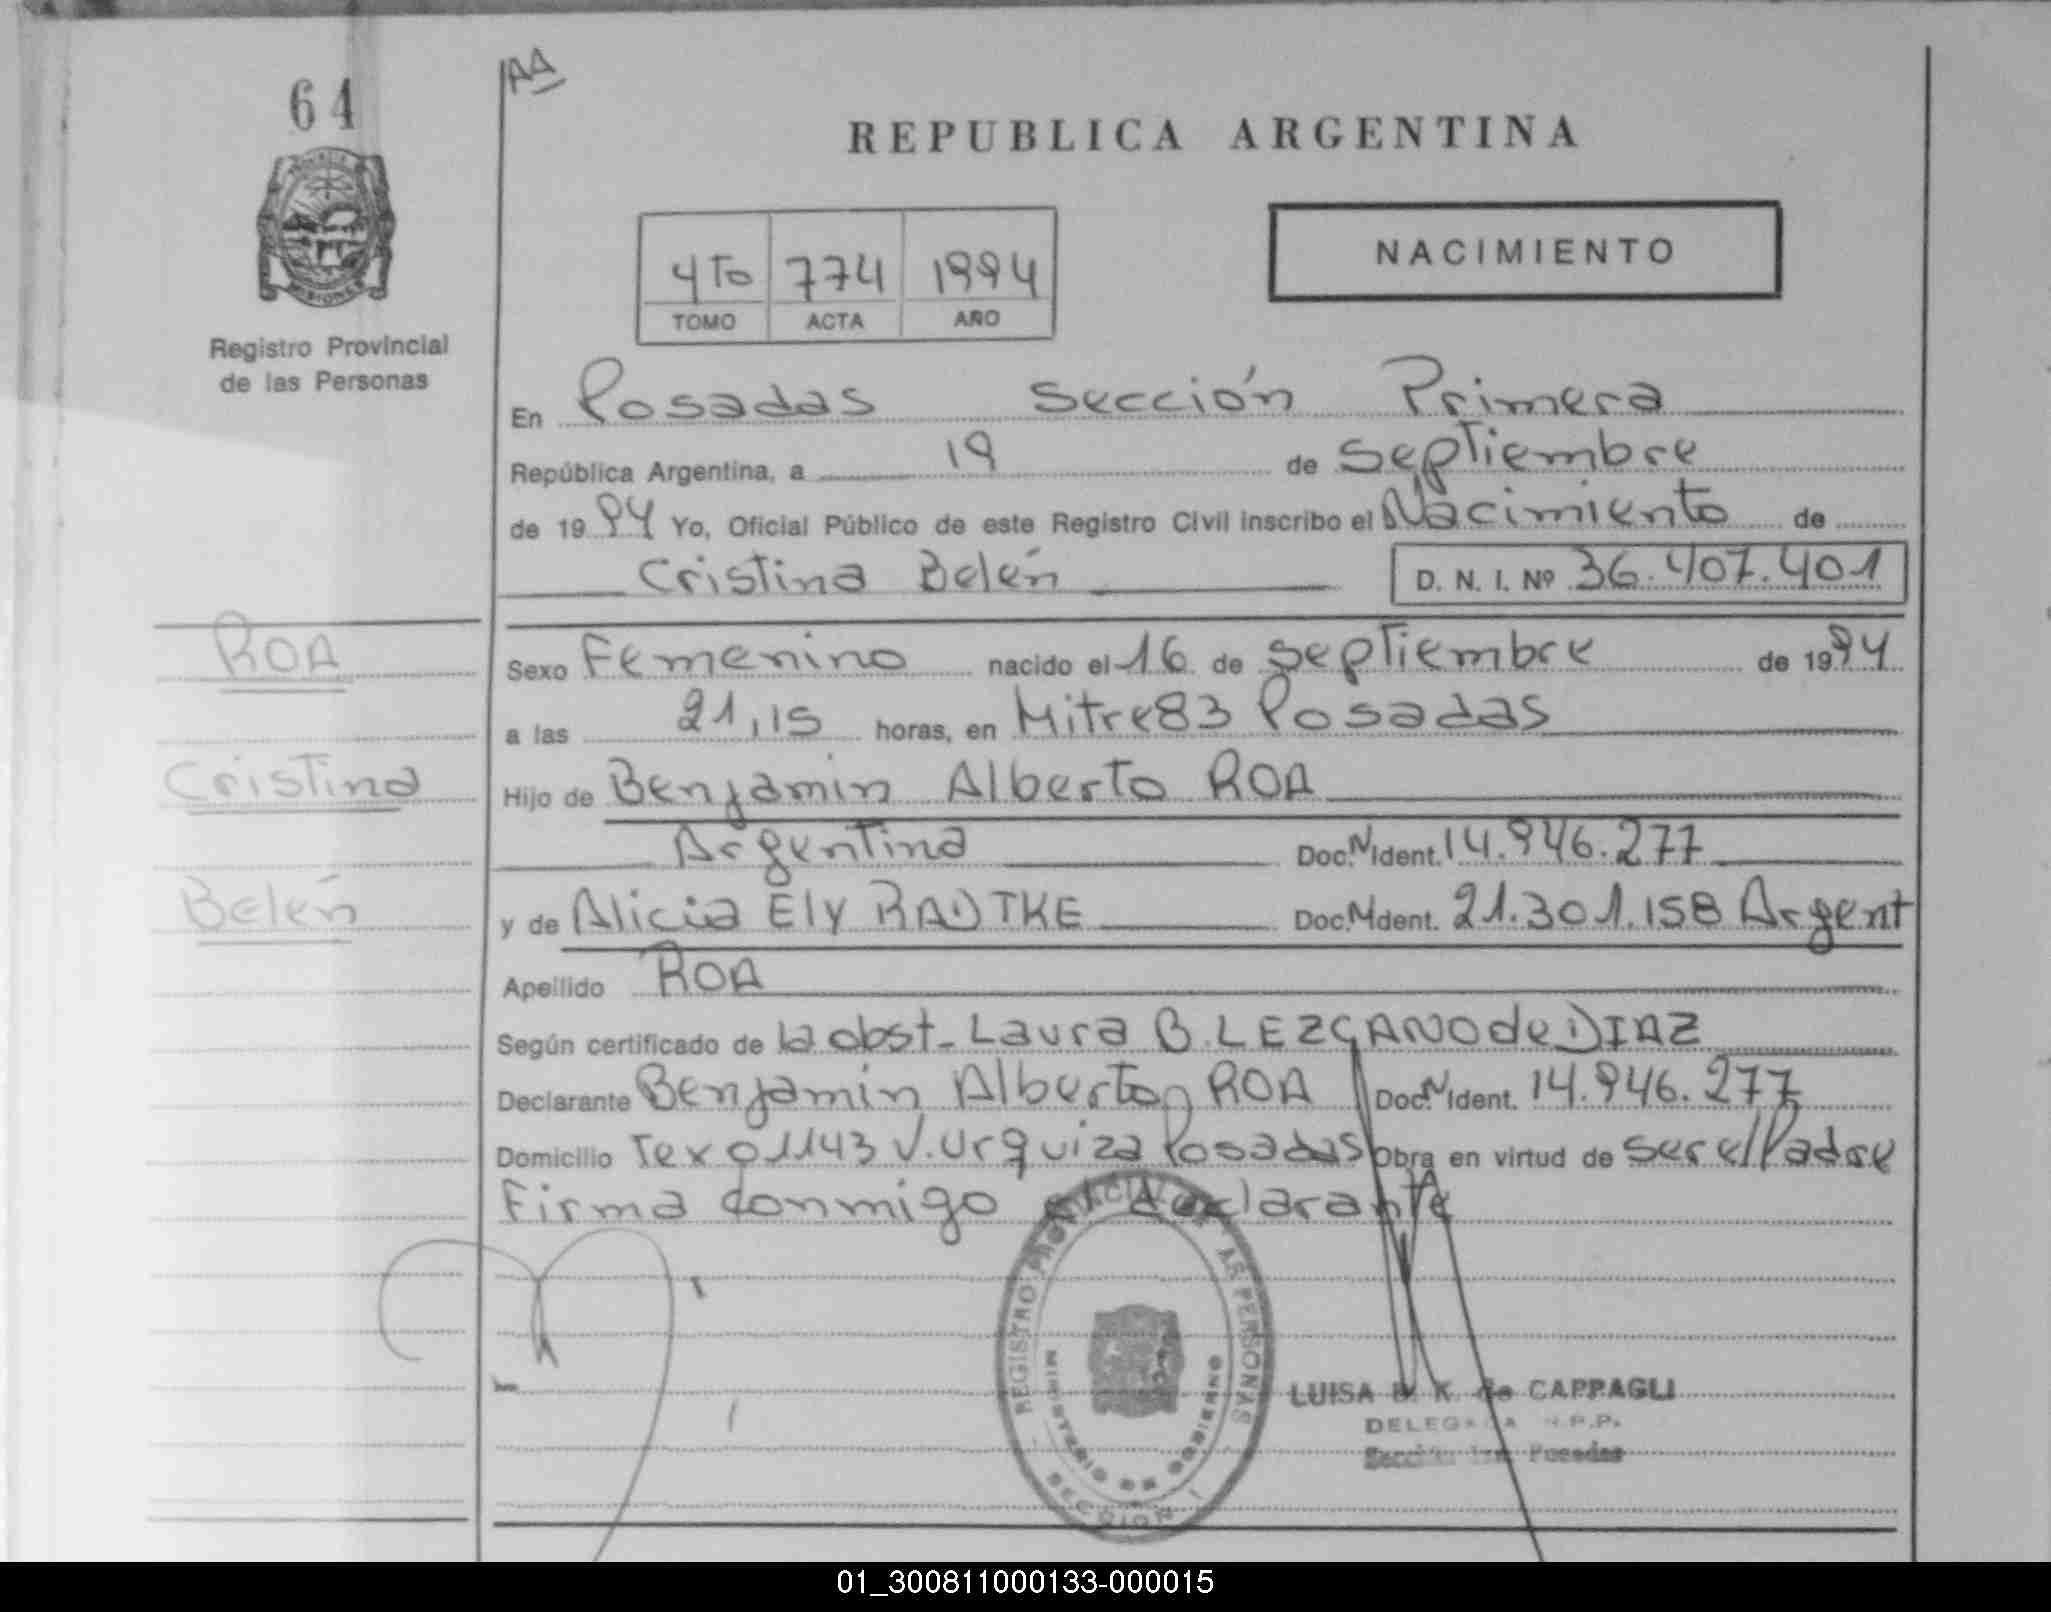 64
AA
REPUBLICA ARGENTINA
MISIONES
Registro Provincial
de las Personas
4To 774 1994
TOMO ACTA AÑO
NACIMIENTO
En Posadas Sección Primera
República Argentina, a 19 de Septiembre
de 1994 Yo, Oficial Público de este Registro Civil inscribo el Nacimiento de
Cristina Belén D. N. I. Nº 36.407.401
ROA
Sexo Femenino nacido el 16 de Septiembre de 1994
a las 21,15 horas, en Mitre 83 Posadas
Cristina
Hijo de Benjamin Alberto ROA
Argentina Doc. N Ident. 14.946.277
Belén
y de Alicia Ely RADTKE Doc. N Ident. 21.301.158 Argent
Apellido ROA
Según certificado de la obst. Laura B. LEZCANO de DIAZ
Declarante Benjamin Alberto ROA Doc. N Ident. 14.946.277
Domicilio 1143 V. Urquiza Posadas Obra en virtud de ser el Padre
Firma conmigo el declarante
REGISTRO PROVINCIAL DE LAS PERSONAS
MINISTERIO DE GOBIERNO
SECCION I
LUISA K. de CAPPAGLI
DELEGADA R.P.P.
Sección 1ra. Posadas
01_300811000133-000015